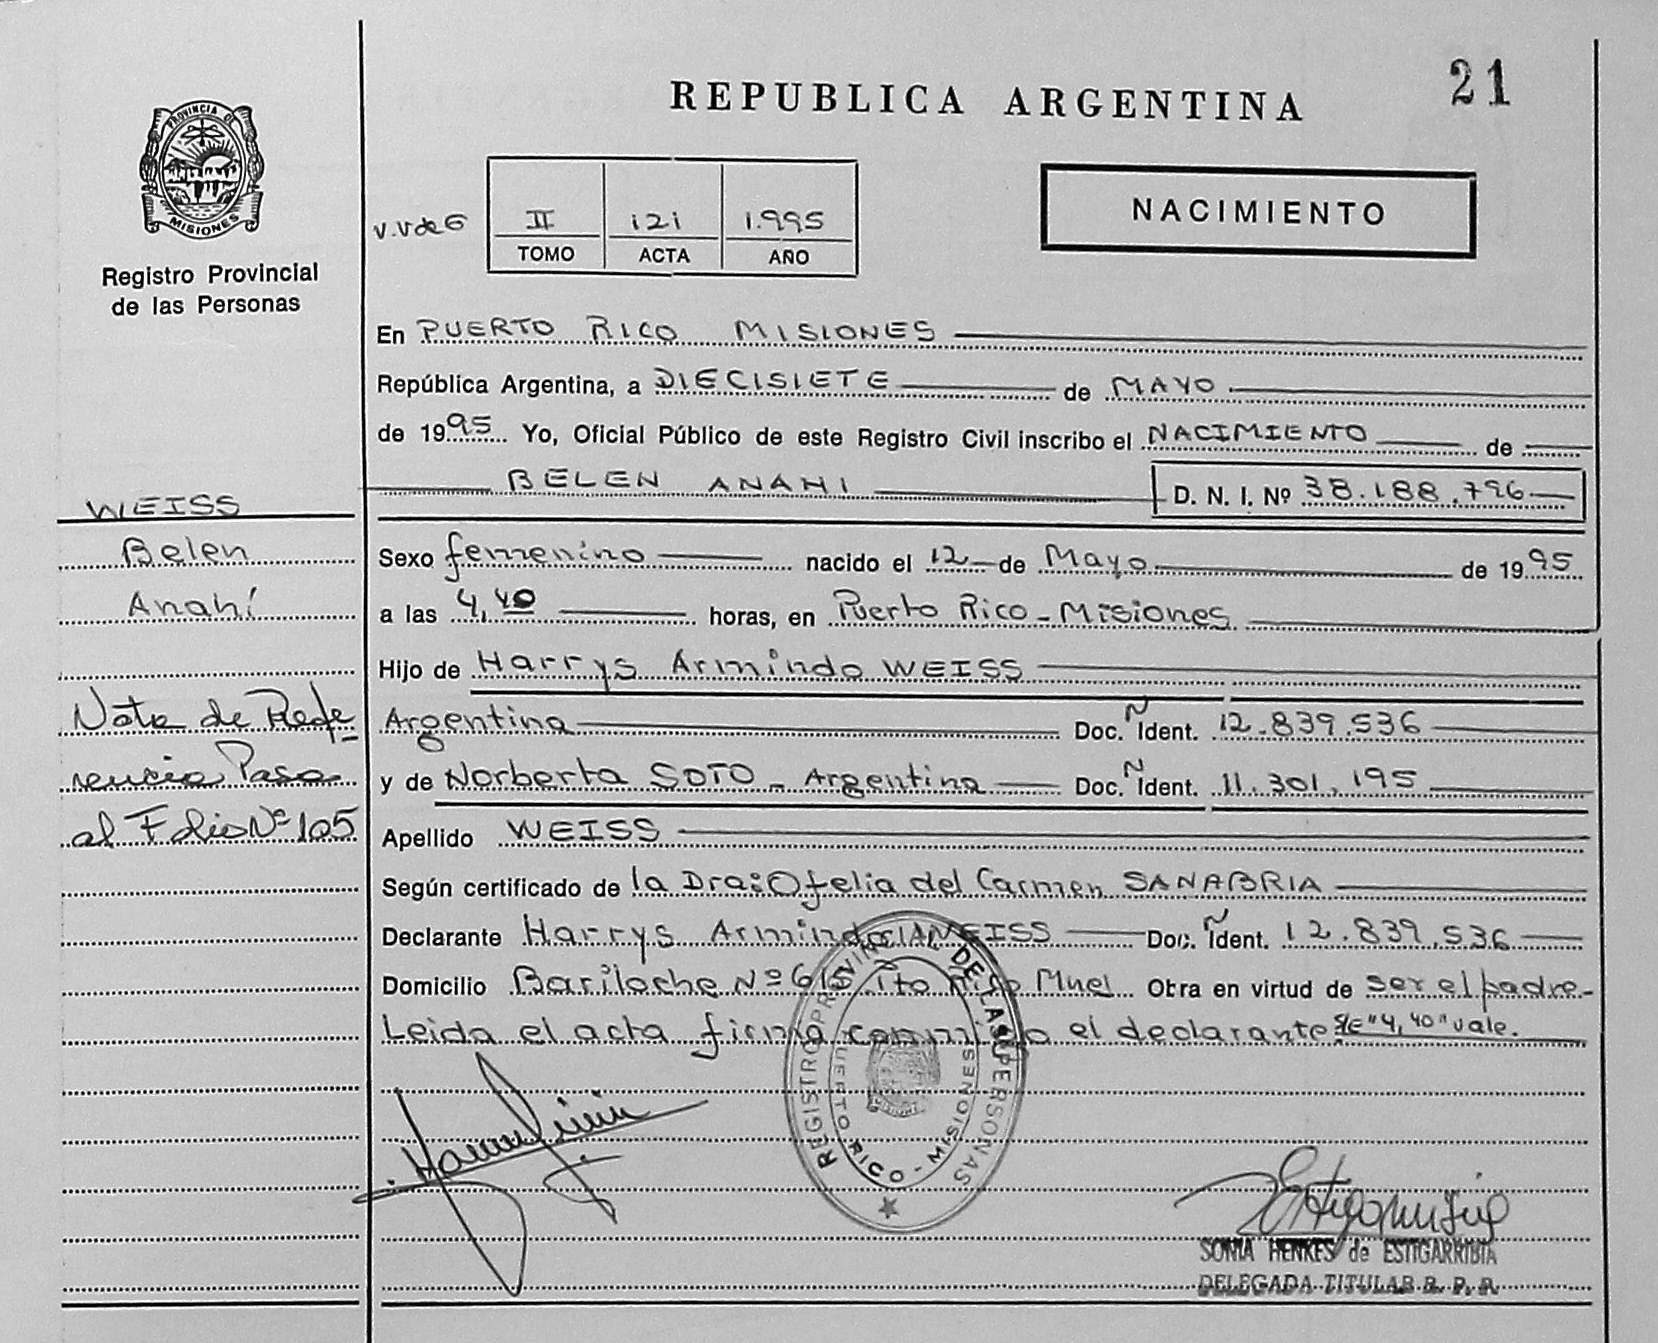 21
REPUBLICA ARGENTINA
PROVINCIA DE
MISIONES
Registro Provincial
de las Personas
V.V de G
II 121 1.995
TOMO ACTA AÑO
NACIMIENTO
En PUERTO RICO MISIONES
República Argentina, a DIECISIETE de MAYO
de 1995 Yo, Oficial Público de este Registro Civil inscribo el NACIMIENTO de
BELEN ANAHI D. N. I. Nº 38.188.796
WEISS
Belen
Anahí
Nota de Refe
rencia Pasa
al Folio Nº 105
Sexo femenino nacido el 12 de Mayo de 1995
a las 4,40 horas, en Puerto Rico - Misiones
Hijo de Harrys Armindo WEISS
Argentina Doc. Ident. 12.839.536
y de Norberta SOTO - Argentina Doc. Ident. 11.301.195
Apellido WEISS
Según certificado de la Dra: Ofelia del Carmen SANABRIA
Declarante Harrys Armindo WEISS Doc. Ident. 12.839.536
Domicilio Bariloche Nº 615 Pto Rico Mnes Otra en virtud de ser el padre-
Leida el acta firma conmigo el declarante S/E "4,40" vale.
REGISTRO PROVINCIAL DE LAS PERSONAS
PUERTO RICO - MISIONES
SONIA HENKES de ESTIGARRIBIA
DELEGADA TITULAR R. P. P.